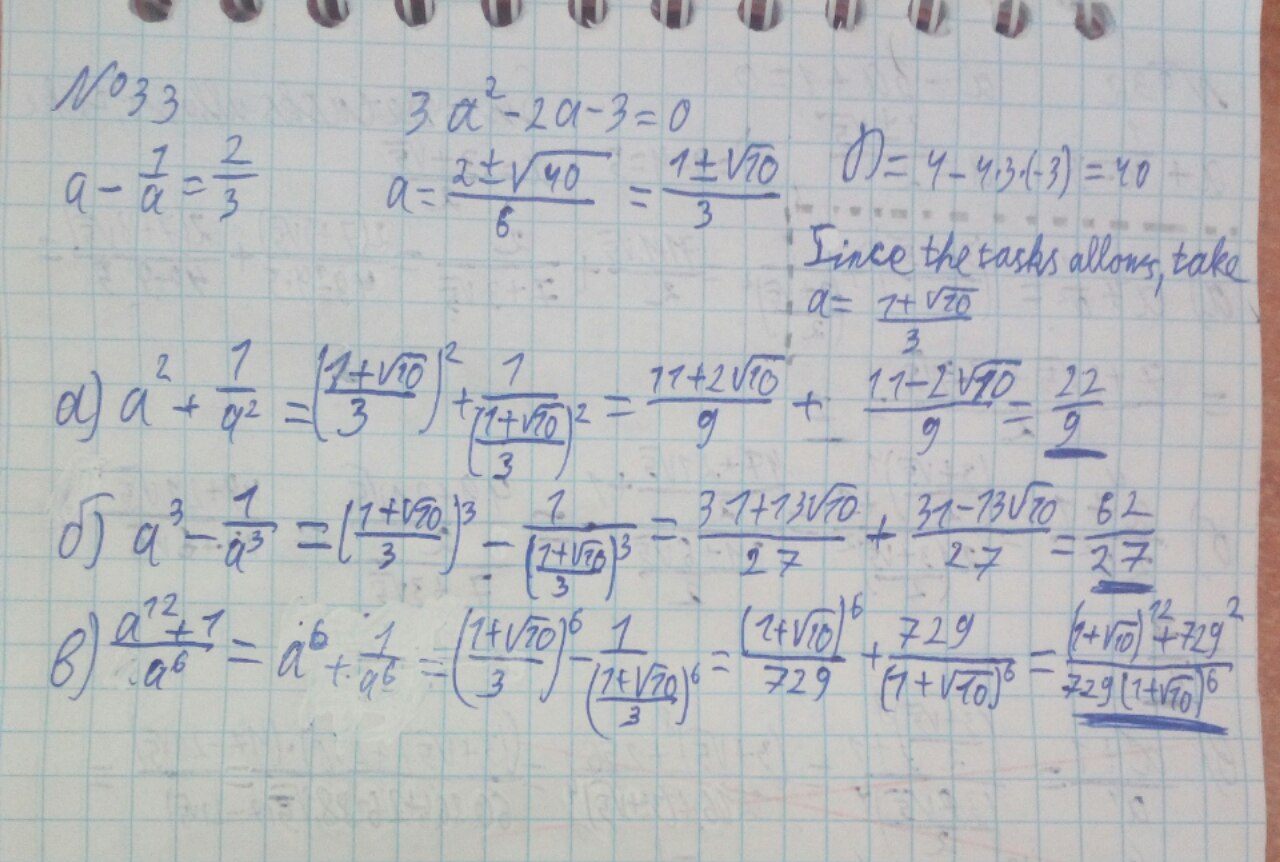 №33
3a² - 2a - 3 = 0
a - 1/a = 2/3
a = (2 ± √40)/6 = (1 ± √10)/3
D = 4 - 4·3·(-3) = 40
Since the tasks allows, take
a = (1+√10)/3
а) a² + 1/a² = ((1+√10)/3)² + 1/((1+√10)/3)² = (11+2√10)/9 + (11-2√10)/9 = 22/9
б) a³ - 1/a³ = ((1+√10)/3)³ - 1/((1+√10)/3)³ = (31+13√10)/27 + (31-13√10)/27 = 62/27
в) (a¹²+1)/a⁶ = a⁶ + 1/a⁶ = ((1+√10)/3)⁶ - 1/((1+√10)/3)⁶ = (1+√10)⁶/729 + 729/(1+√10)⁶ = ((1+√10)¹²+729²)/(729(1+√10)⁶)